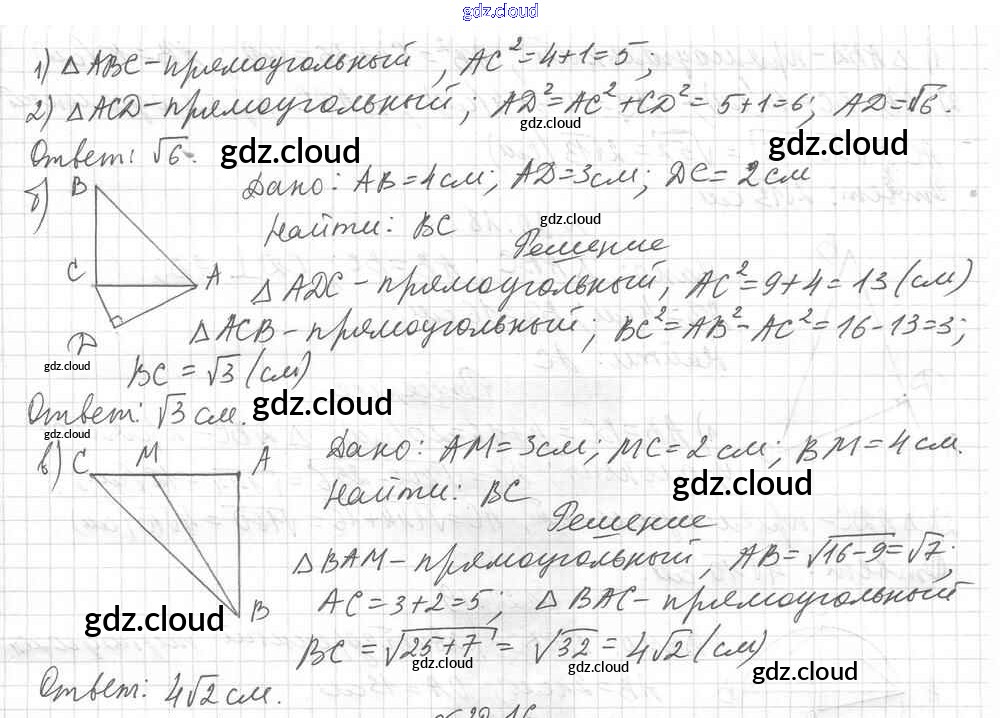 gdz.cloud
1) △ABC - прямоугольный, AC² = 4+1 = 5;
2) △ACD - прямоугольный; AD² = AC² + CD² = 5+1 = 6; AD = √6.
gdz.cloud
Ответ: √6.
gdz.cloud
gdz.cloud
б) B
Дано: AB = 4 см; AD = 3 см; DC = 2 см
Найти: BC
gdz.cloud
Решение
C A
△ADC - прямоугольный, AC² = 9+4 = 13 (см)
△ACB - прямоугольный; BC² = AB² - AC² = 16-13 = 3;
D
gdz.cloud
BC = √3 (см)
Ответ: √3 см.
gdz.cloud
gdz.cloud
в) C M A
Дано: AM = 3 см; MC = 2 см; BM = 4 см.
gdz.cloud
Найти: BC
Решение
△BAM - прямоугольный, AB = √16-9 = √7;
AC = 3+2 = 5; △BAC - прямоугольный
B
gdz.cloud
BC = √25+7 = √32 = 4√2 (см)
gdz.cloud
gdz.cloud
gdz.cloud
Ответ: 4√2 см.
gdz.cloud